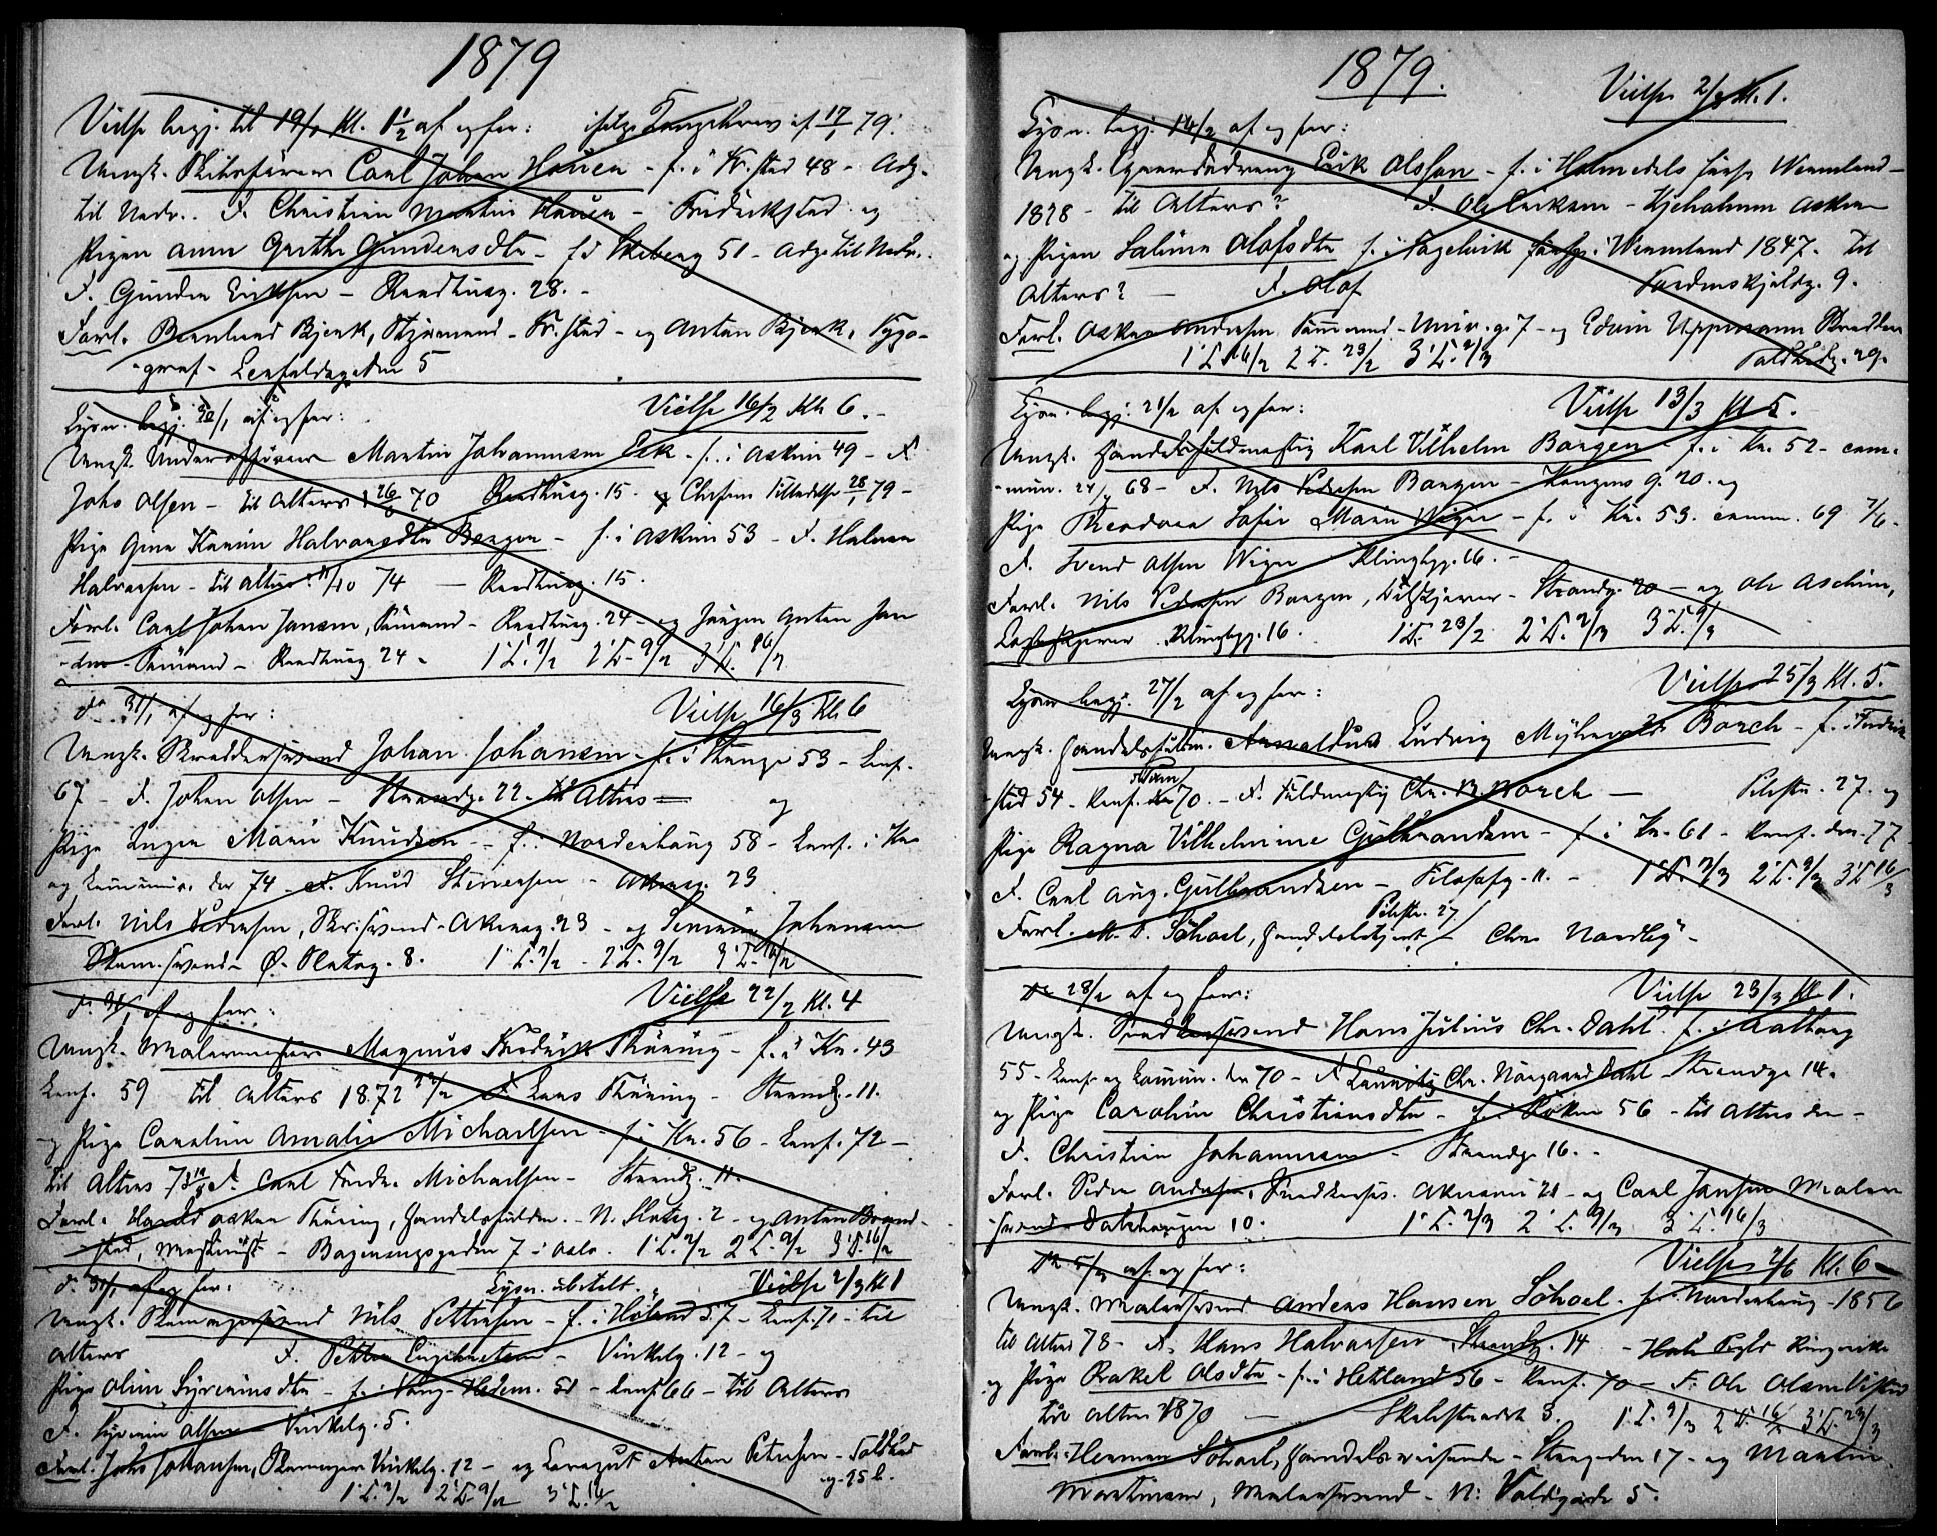 1879
Vielse begj. til 19/1 Kl. 1 1/2 af og for: ifølge Kongebrev af 17/1 79.
Ungk. Skibsfører Carl Johan Hauen - f. i Fr.stad 48 - Adg.
til Nadv. F. Christian Martin Hauen - Fredrikstad og
Pigen Anne Grethe Gundersdtr - f. i Skeberg 51 - Adg. til Nadv.
F. Gunder Eriksen - Raadhusg. 28. -
Forl. Bernhard Bjerk, Styrmand - Fr.stad - og Anton Bjerk, Typo-
-graf - 5
Lysn. begj. /1 af og for: Vielse 16/2 Kl. 6. -
Ungk. Underofficer Martin Johannesen Eek - f. i Askim 49 - F.
Johs Olsen - til Alters 70 Raadhusg. 15. og Chefens Tilladelse 28/1 79 -
Pige Gina Karine Halvorsdtr Bergen - f. i Askim 53 - F. Halvor
Halvorsen - til Alters 11/10 74 - Raadhusg. 15.
Forl. Carl Johan Jansen, Sømand - Raadhusg. 24 - og Jørgen Anton Jan
-sen - Sømand - Raadhusg 24 - 1' L. 2/2 2' L. 9/2 3' L. 16/2
do 31/1 af og for: Vielse 16/3 Kl. 6
Ungk. Skræddersvend Johan Johansen - f. i Stange 53 - konf.
67 - F. Johan Olsen - Strandg. 22 - til Alters - og
Pige Inger Marie Knudsen - f. i Norderhaug 58 - konf. i Kra
og kommun. der 74 - F. Knud Steneren - Akersg. 23
Forl. Nils Pedersen, Skr.svend - Akersg. 23 - og Johansen
svend - Ø. Slotsg. 8. 1' L. 2/2 - 2' L. 9/2 3' L. 16/2
do 31/1 af og for: Vielse 22/2 Kl. 4
Ungk. Malermester Magnus Fredrik Thüring - f. i Kra. 43
konf. 59 til Alters 1872 F. Lars Thüring - Strandg. 11.
og Pige Caroline Amalie Michaelsen - f. i Kra. 56 - konf. 72 -
til Alters 73 F. Carl Fredr. Michaelsen - Strandg. 11.
Forl. Harald Oskar Thüring, Handelsfuldm. - N. Slotsg. 2 - og Anton Brand-
-stad, Maskinist - 7 i Oslo. 1' L. 2/2 2' L. 9/2 3' L. 16/2
do 31/1 af og for: Lysn. ubetalt. Vielse 2/3 Kl. 1
Ungk. Skomagersvend Nils Pettersen - f. i Høland 57 - konf. 71 - til
Alters F. Petter Engebretsen - Vinkelg. 12 - og
Pige Oline Syversensdtr - f. i Vang - Hedem. 51 - konf. 66 - til Alters
F. Syver Olsen - Vinkelg. 5.
Forl. Johs Johansen, Skomager Vinkelg. 12 - og Anton Petersen - Toldbod
g. 25 b.
1' L. 2/2 2' L. 9/2 3' L. 16/2
1879.
Vielse 2/3 Kl. 1.
Lysn. begj. 14/2 af og for:
Ungk. Gaardsdreng Erik Olsson - f. i Holmedals Wermland -
1828 - til Alters? F. Ole Eriksen - Askim
og Pigen Sabine Olofsdtr f. i Fogelvik Wermland 1847. til
Alters? - F. Olof Tordenskjoldsg. 9.
Forl. Oskar Andersen Tømmermd. - Univ. g. 7 - og Edvin Uppmann Skrædder
1' L. 16/2 2' L. 23/2 3' L. 2/3 Toldbodg. 29.
Lysn. begj. 21/2 af og for: Vielse 13/3 Kl. 5.
Ungk. Handelsfuldmægtig Karl Vilhelm Bangen f. i Kra. 52 - com-
-mun. 68 - F. Nils Pedersen Bangen - Kongens g. 20. og
Pige Theodora Sofie Marie Wiger - f. i Kra. 53. comm. 69 7/6 -
F. Svend Olsen Wiger Klingbygg. 16. -
Forl. Nils Pedersen Bangen, - Strandg. 20 - og Ole Aschim,
Klingbygg. 16. 1' L. 23/2 2' L. 2/3 3' L. 9/3
Lysn begj. 27/2 af og for: Vielse 25/3 Kl. 5.
Ungk. Handelsfuldm. Arnoldus Ludvig Myhrwold Borch - f. i Fredrik
-stad 54 - konf. 70. - F. Fuldmægtig Chr. B. Borch - Pilestr. 27. og
Pige Ragna Vilhelmine Gulbrandsen - f. i Kra. 61 - konf. der 77
F. Carl Aug. Gulbrandsen - Filosofg. 11. - 1' L. 2/3 2' L. 9/3 3' L. 16/3
Forl. M. D. Schoel, Handelsbetjent Pilestr. 27 / Chr. Nordby -
Do 28/2 af og for: Vielse 23/3 Kl. 1.
Ungk. Snedkersvend Hans Julius Chr. Dahl f. i Aalborg
55 - konf. og kommun. der 70 - F. Lauritz Chr. Nørgaard Dahl Strandg. 14.
og Pige Caroline Christiansdtr - f. i Røken 56 - til Alters der -
F. Christian Johannesen - Strandg. 16. -
Forl. Peder Andersen, Snedkersv. Akersvei 21 - og Carl Jansen Maler
svend - Dalsbergien 10. 1' L. 2/3 2' L. 9/3 3' L. 16/3
Do 5/3 af og for: Vielse 2/6 Kl. 6 -
Ungk. Malersvend Anders Hansen Schoel - f. i Norderhaug - 1856
til Alters 78 - F. Hans Halvorsen Strandg. 14 - Hole Ringerike
og Pige Rakel Olsdtr - f. i Hetland 56 - konf. 70 - F. Ole Olsen
til Alters 1870 - Skelestrædet 3. 1' L. 9/3 2' L. 16/3 3' L. 23/3
Forl. Herman Schoel, Handelsreisende - Storgaden 17 - og Martin
Mortensen, Malersvend - N: Voldgade 5.